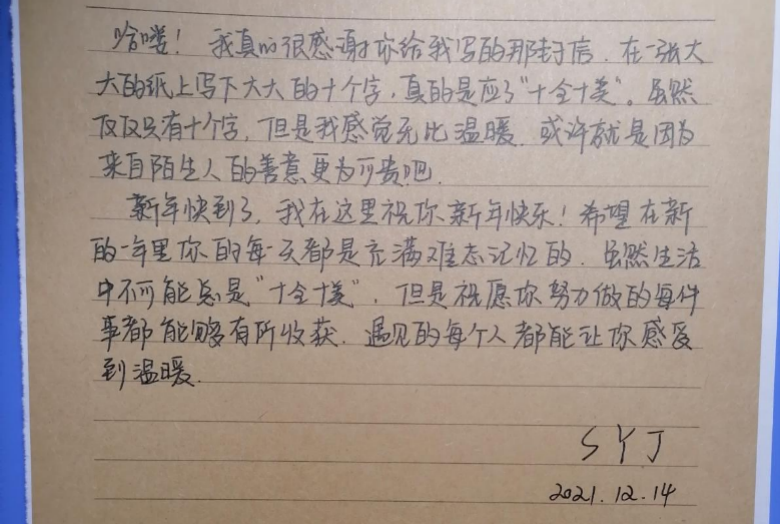 哈喽！我真的很感谢你给我写的那封信.在一张大
大的纸上写下大大的十个字,真的是应了"十全十美"。虽然
仅仅只有十个字,但是我感觉无比温暖.或许就是因为
来自陌生人的善意更为可贵吧.
新年快到了,我在这里祝你新年快乐！希望在新
的一年里你的每一天都是充满难忘记忆的.虽然生活
中不可能总是"十全十美",但是祝愿你努力做的每件
事都能够有所收获.遇见的每个人都能让你感受
到温暖.
SYJ
2021.12.14